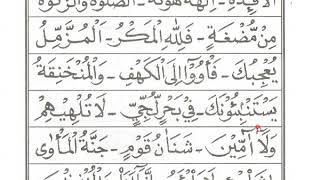 الْأَفْئِدَةِ - اٰلِهَةً هَوٰىهُ - الصَّلٰوةَ وَالزَّكٰوةَ
مِنْ مُضْغَةٍ - فَلِلّٰهِ الْمَكْرُ - الْمُزَّمِّلُ
يُعْجِبُكَ - فَأْوٗۤا اِلَى الْكَهْفِ - وَالْمُنْخَنِقَةُ
يَسْتَنْۢبِئُوْنَكَ - فِيْ بَحْرٍ لُّجِّيٍّ - لَا تُلْهِيْهِمْ
وَلَاۤ آمِّيْنَ - شَنَاٰنُ قَوْمٍ - جَنَّةُ الْمَأْوٰى